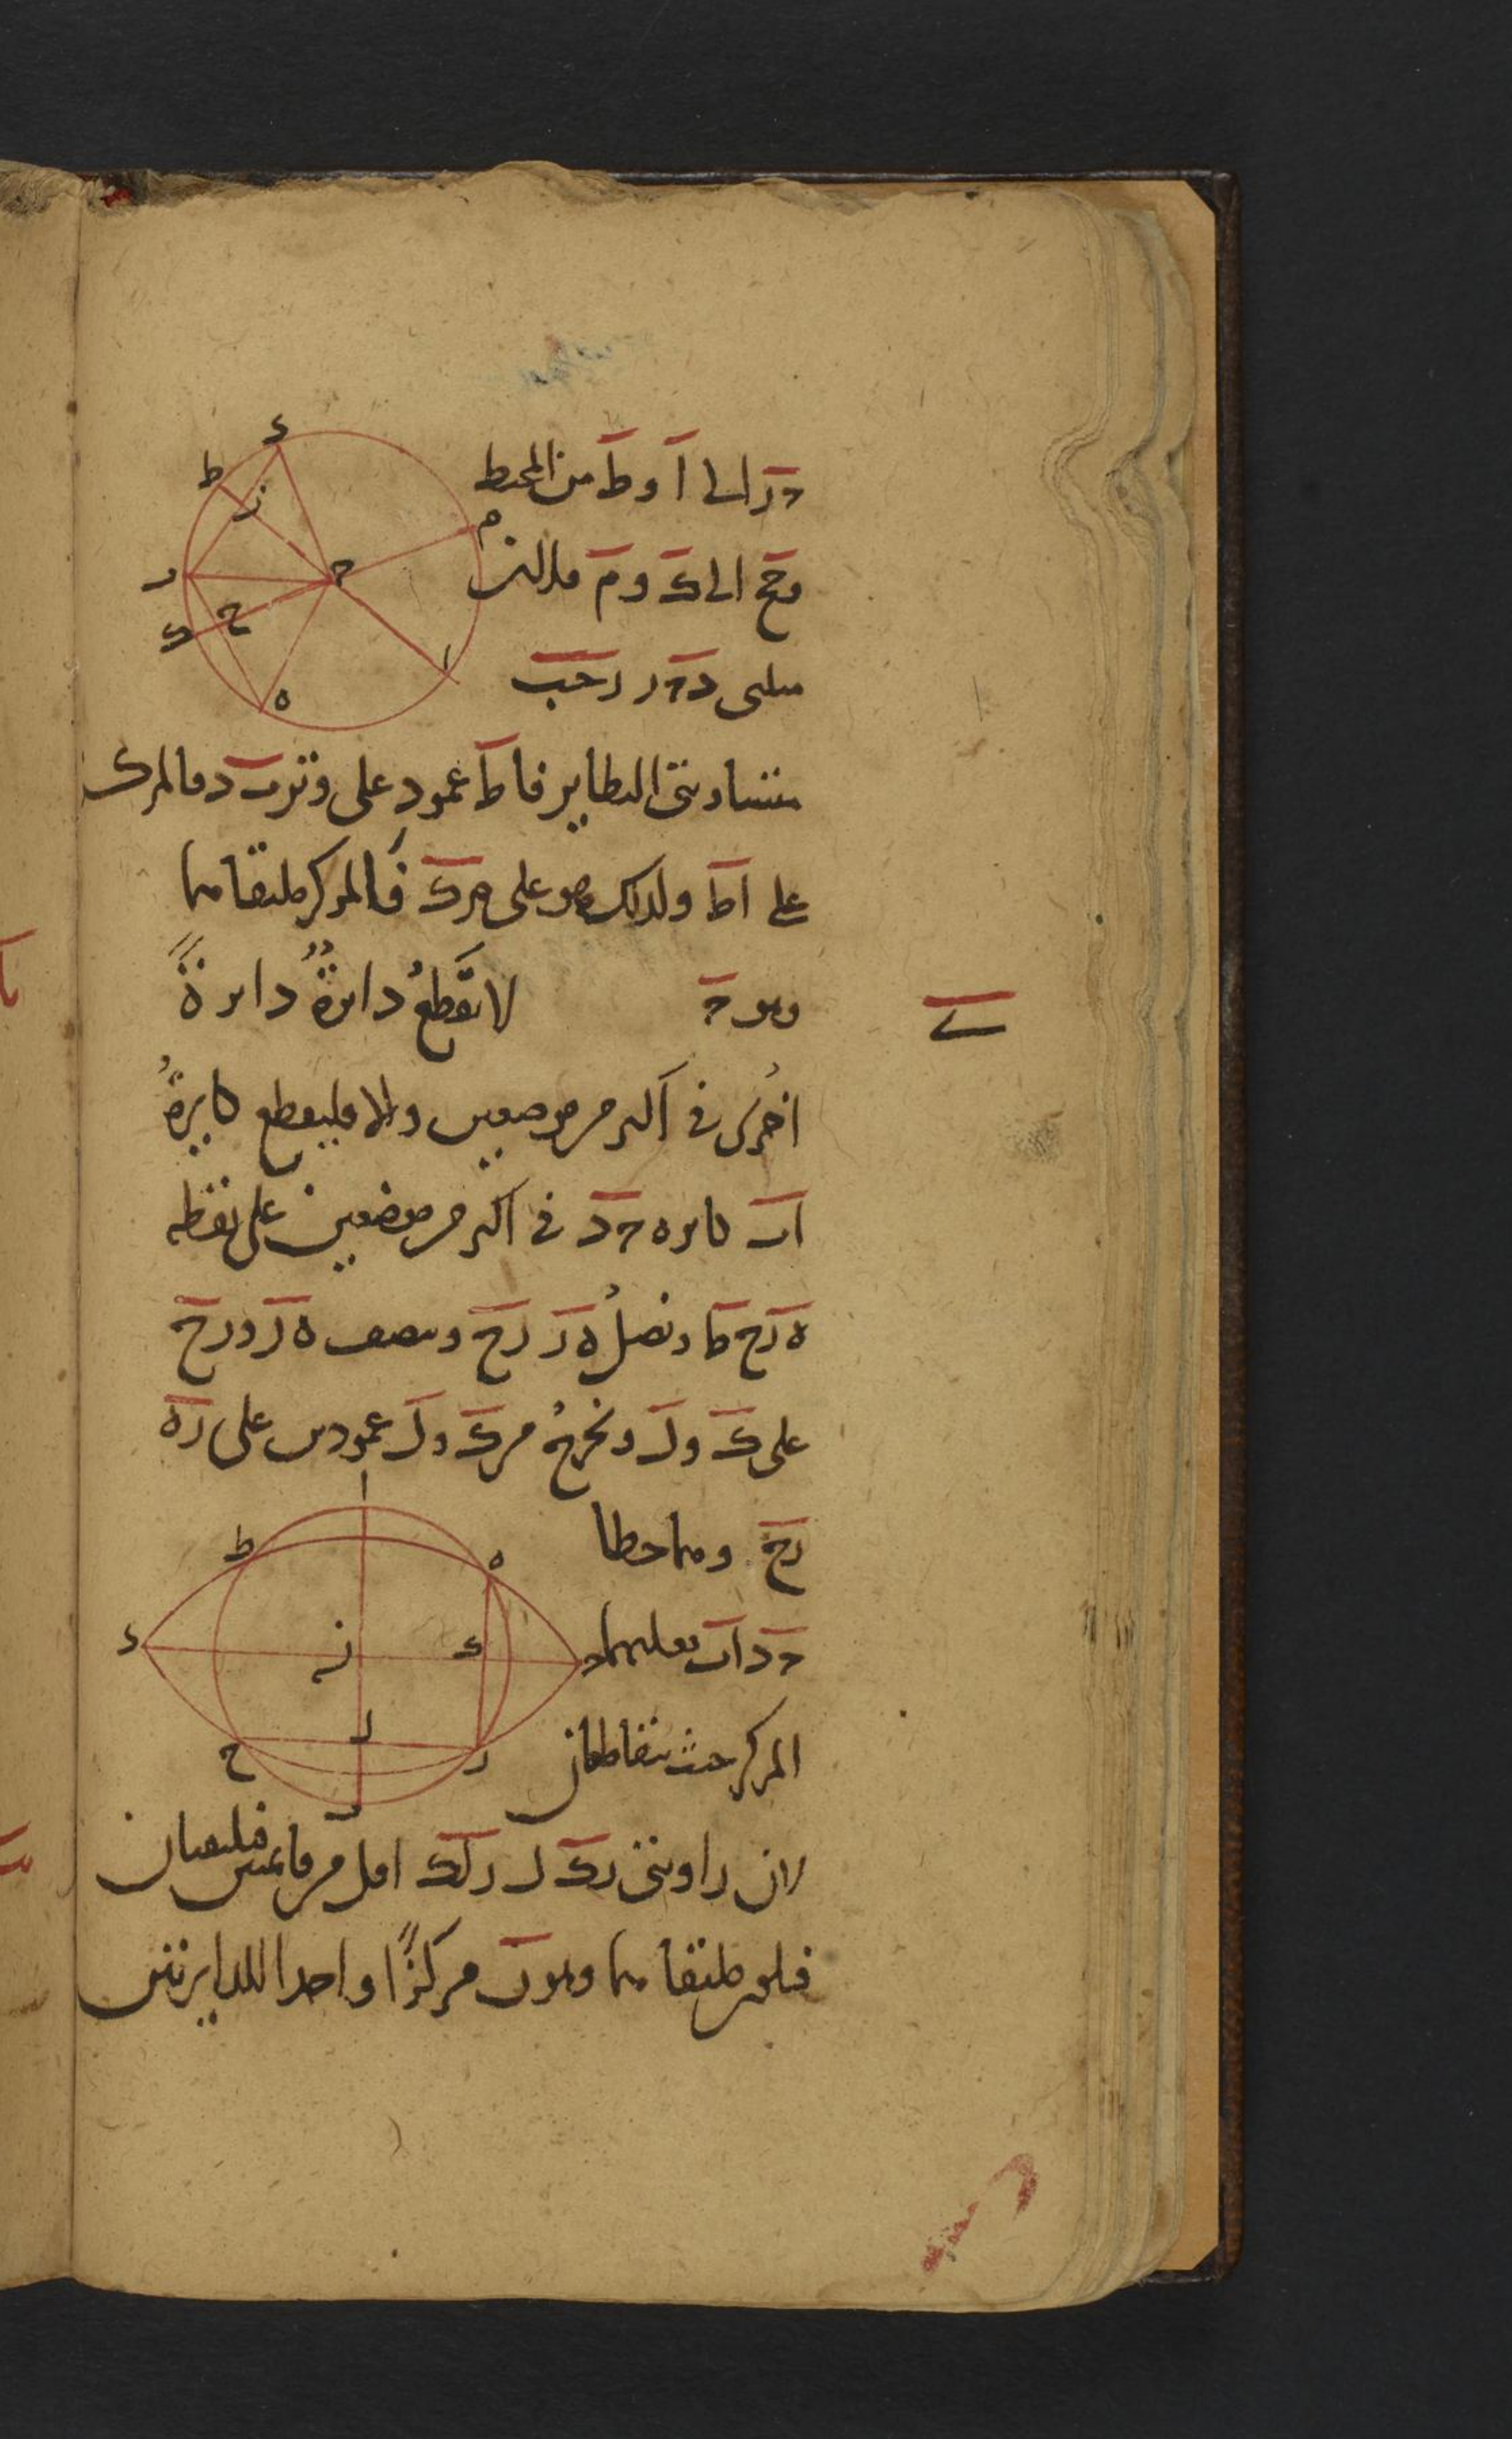 حز الى ا و ط من المحيط
وحح الى ك و م فلان
مثلثى دحز زحب
متساويتى النظاير فاط عمود على وتر ب د فالمركز
على اط ولذلك هو على م ك فالمركز ملتقاهما
وهو ح لا تقطعُ دايرةٌ دايرةً
ى
اخرى فى اكثر من موضعين والا فليقطع دايرةُ
اب دايره حد فى اكثر من موضعين على نقطه
ه ر ح ط ونصلُ ه ر رح وننصف ه ر و رح
على ك و ل ونخرجُ من ك و ل عمودين على ره
رح وهما خطا
حد اب فعليهما
المركز حيث يتقاطعان
لان زاويتى رك ل رلك اقل من قايمتين فيلتقيان
فليكن ملتقاهما وهو ن مركزًا واحدا للدايرتين
د
ط
ز
ح
م
ر
ك
ح
ا
ه
ا
ط
ه
د
ن
ك
ح
ل
ح
ر
ب